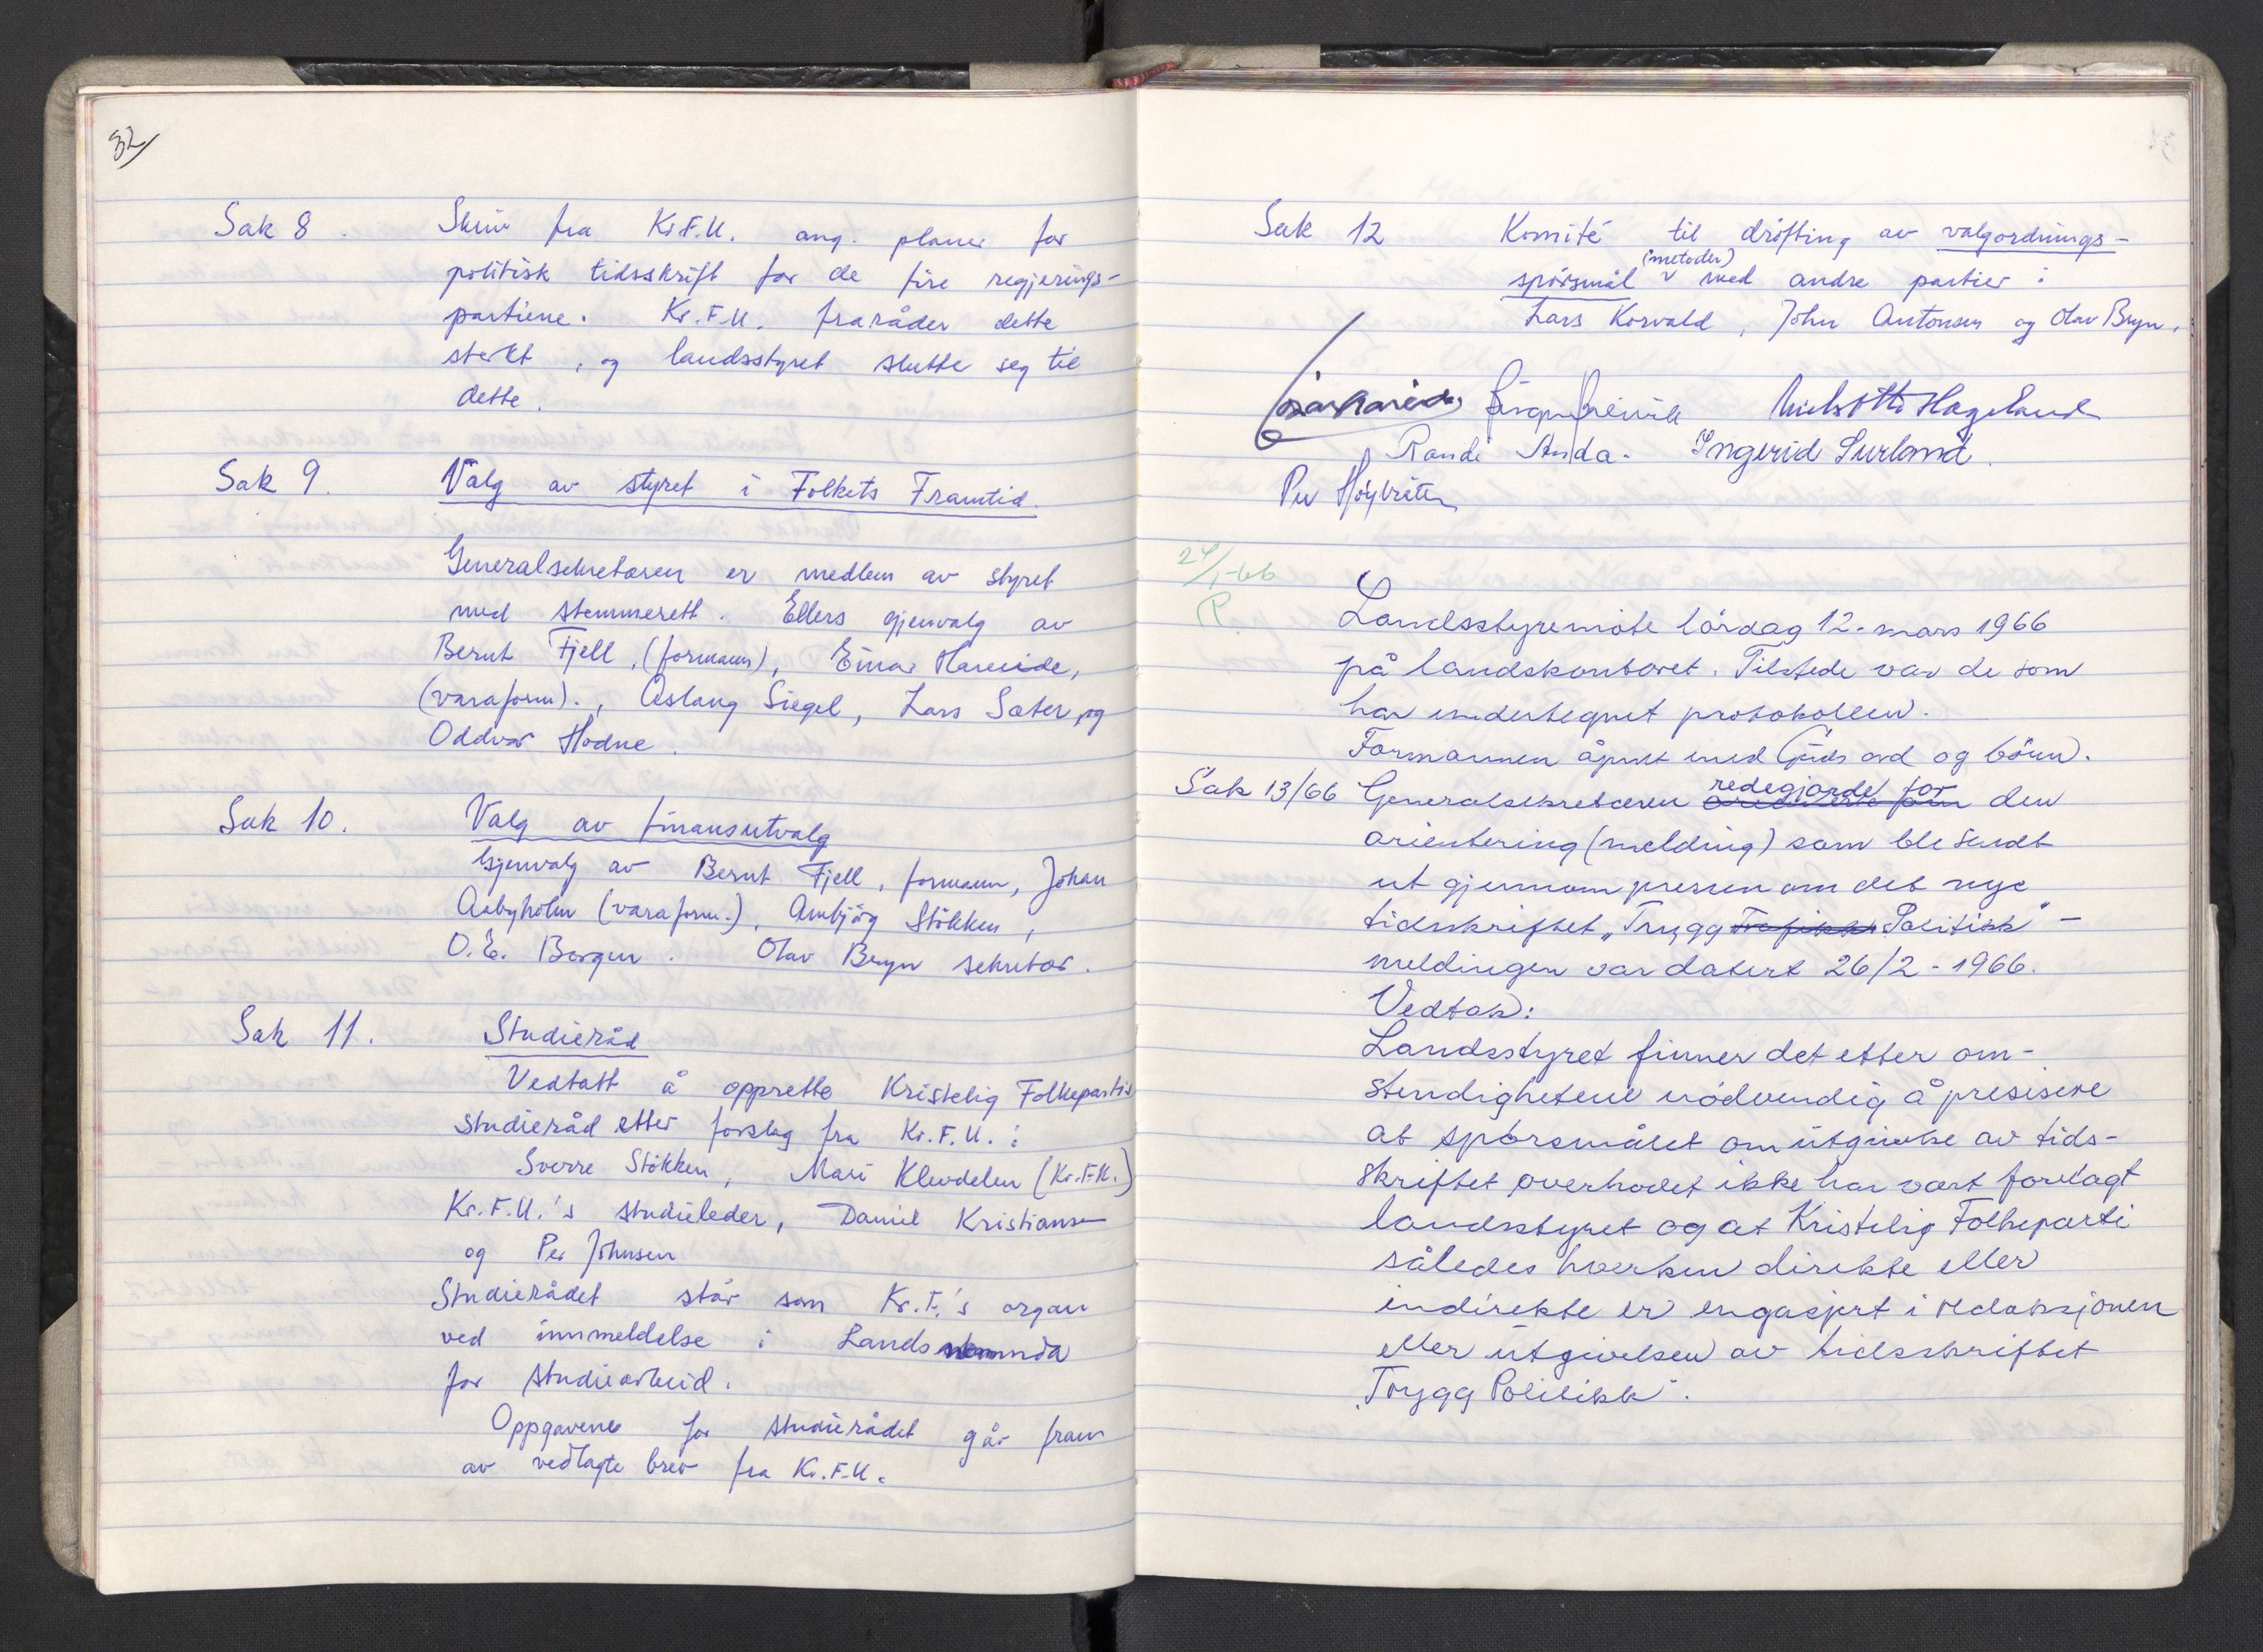 32/
Sak 8. Skriv fra Kr.F.U. ang. planer for
politisk tidsskrift for de fire regjerings-
partiene. Kr.F.U. fraråder dette
sterkt, og landsstyret slutte seg til
dette.
Sak 9. Valg av styret i Folkets Framtid.
Generalsekretæren er medlem av styret
med stemmerett. Ellers gjenvalg av
Bernt Fjell, (formann), Einar Hareide,
(varaform)., Aslaug Siegel, Lars Sæter, og
Oddvar Hodne.
Sak 10. Valg av finansutvalg
Gjenvalg av Bernt Fjell, formann, Johan
Aabyholm (varaform.), Ambjörg Stökken,
O.E. Borgen. Olav Bryn sekretær.
Sak 11. Studieråd
Vedtatt å opprette Kristelig Folkepartis
studieråd etter forslag fra Kr.F.U.:
Sverre Stökken, Mari Klevdelen (Kr.F.U.)
Kr.F.U.'s studieleder, Daniel Kristiansen
og Per Johnsen
Studierådet står som Kr.F.'s organ
ved innmeldelse i Landsnemnda
for studiearbeid.
Oppgavene for studierådet går fram
av vedlagte brev fra Kr.F.U.
Sak 12 Komité til dröfting av valgordnings-
spörsmål (metoder) med andre partier:
Lars Korvald, John Antonsen og Olav Bryn.
Einar Hareide Niels Otto Hageland
Randi Anda. Ingerid Surland.
Per Höybråten
24/1-66
R.
Landsstyremöte lördag 12. mars 1966
på landskontoret. Tilstede var de som
har undertegnet protokollen.
Formannen åpnet med Guds ord og bönn.
Sak 13/66 Generalsekretæren redegjorde for den
orientering (melding) som ble sendt
ut gjennom pressen om det nye
tidsskriftet „Trygg Trafikk Politikk" -
meldingen var datert 26/2-1966.
Vedtak:
Landsstyret finner det etter om-
stendighetene nödvendig å presisere
at spörsmålet om utgivelse av tids-
skriftet overhodet ikke har vært forelagt
landsstyret og at Kristelig Folkeparti
således hverken direkte eller
indirekte er engasjert i redaksjonen
eller utgivelsen av tidsskriftet
„Trygg Politikk".